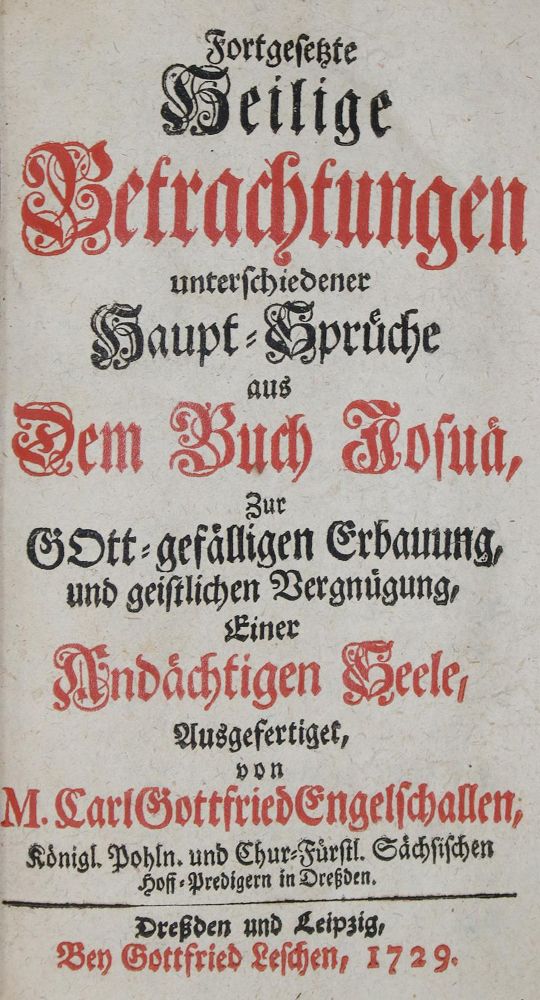 Fortgesetzte
Heilige
Betrachtungen
unterschiedener
Haupt-Sprüche
aus
Dem Buch Josuä,
Zur
GOtt-gefälligen Erbauung,
und geistlichen Vergnügung,
Einer
Andächtigen Seele,
Ausgefertiget,
von
M. Carl Gottfried Engelschallen,
Königl. Pohln. und Chur-Fürstl. Sächsischen
Hoff-Predigern in Dreßden.
Dreßden und Leipzig,
Bey Gottfried Leschen, 1729.